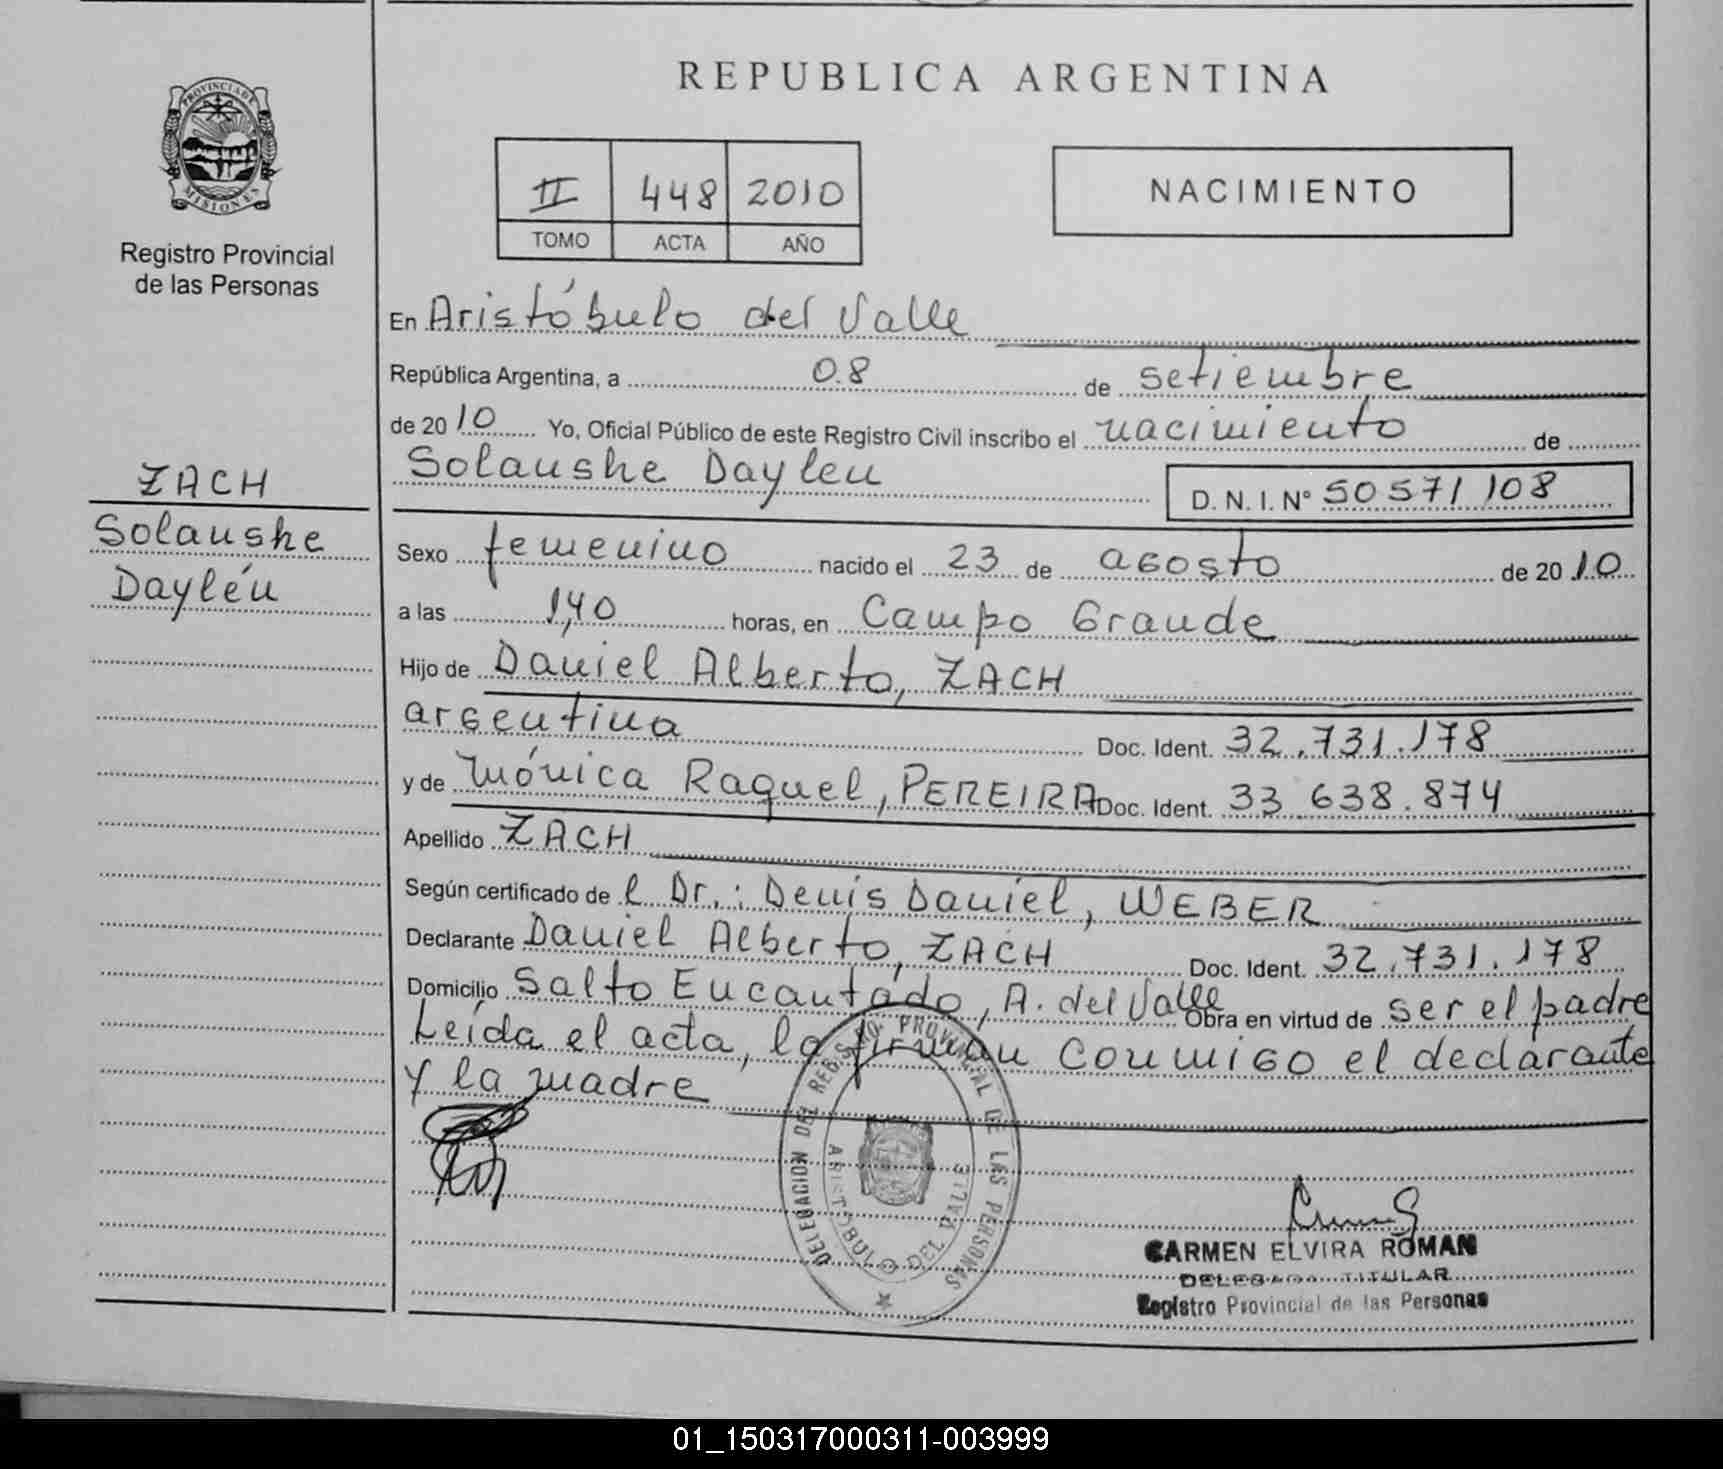 REPUBLICA ARGENTINA
PROVINCIA DE
MISIONES
Registro Provincial
de las Personas
II 448 2010
TOMO ACTA AÑO
NACIMIENTO
En Aristóbulo del Valle
República Argentina, a 08 de setiembre
de 2010 Yo, Oficial Público de este Registro Civil inscribo el nacimiento de
Solanshe Daylen D. N. I. N° 50571108
ZACH
Solanshe
Daylén
Sexo femenino nacido el 23 de agosto de 2010
a las 1,40 horas, en Campo Grande
Hijo de Daniel Alberto, ZACH
argentina Doc. Ident. 32.731.178
y de Mónica Raquel, PEREIRA Doc. Ident. 33 638.874
Apellido ZACH
Según certificado de l Dr.: Denis Daniel, WEBER
Declarante Daniel Alberto, ZACH Doc. Ident. 32.731.178
Domicilio Salto Encantado, A. del Valle Obra en virtud de ser el padre
Leída el acta, la firman conmigo el declarante
y la madre
DELEGACION DEL REGISTRO PROVINCIAL DE LAS PERSONAS
ARISTOBULO DEL VALLE
CARMEN ELVIRA ROMAN
DELEGADA TITULAR
Registro Provincial de las Personas
01_150317000311-003999